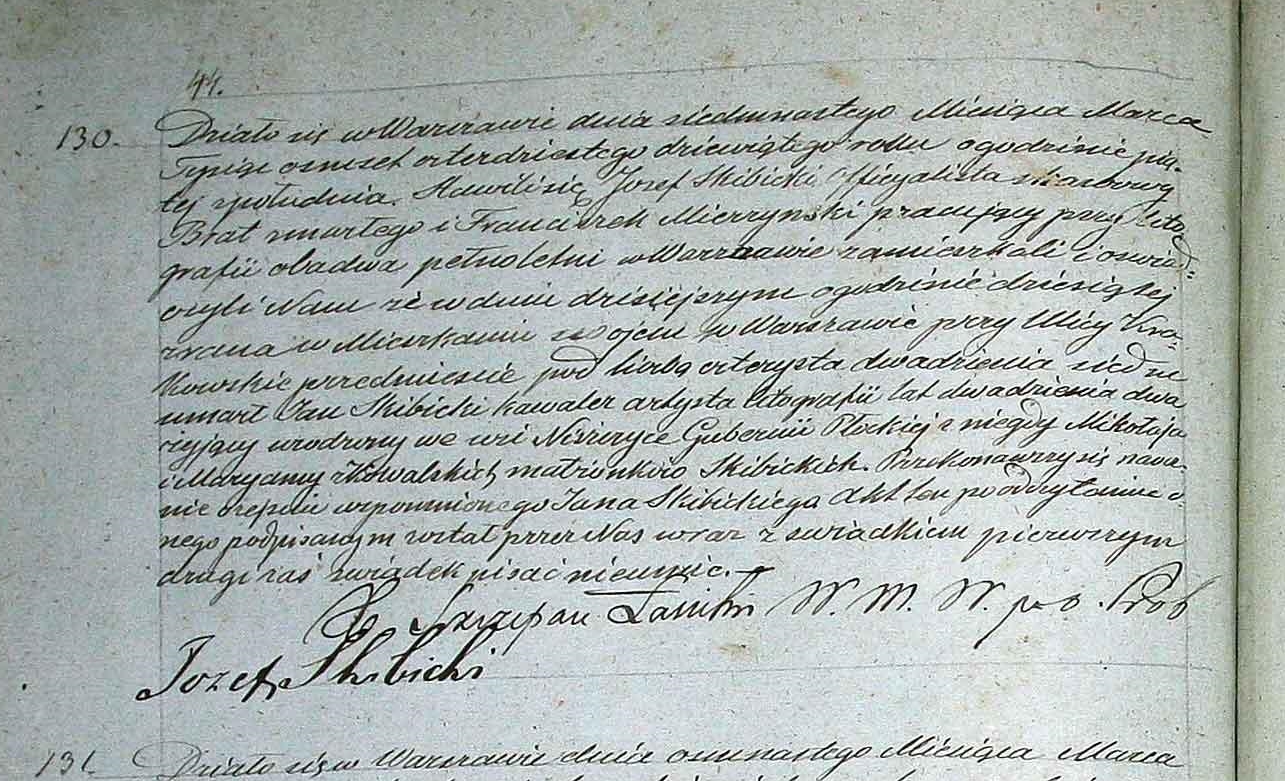 44.
130. Działo się w Warszawie dnia siedmnastego Miesiąca Marca
Tysiąc osmset czterdziestego dziewiątego roku o godzinie pią-
tej zpołudnia. Stawili się Jozef Skibicki Officyalista skarbowy
Brat zmarłego i Franciszek Mierzynski pracujący przy Lito-
grafii obadwa pełnoletni w Warszawie zamieszkali i oswiad-
czyli Nam że w dniu dzisiejszym o godzinie dziesiątej
zrana w Mieszkaniu swojem w Warszawie przy Ulicy Kra-
kowskie przedmiescie pod liczbą czterysta dwadziescia siedm
umarł Jan Skibicki kawaler artysta litografii lat dwadziescia dwa
żyjący urodzony we wsi Gubernii Płockiej z niegdy Mikołaja
i Maryanny z Kowalskich małżonków Skibickich. Przekonawszy się naocz-
nie o zejsciu wspomnionego Jana Skibickiego Akt ten po odczytaniu o-
nego podpisanym został przez Nas wraz z swiadkiem pierwszym
drugi zaś swiadek pisać nieumie.
Szczepan W. M. W. p. o. Prob
Jozef Skibicki
131. Działo się w Warszawie dnia osmnastego Miesiąca Marca